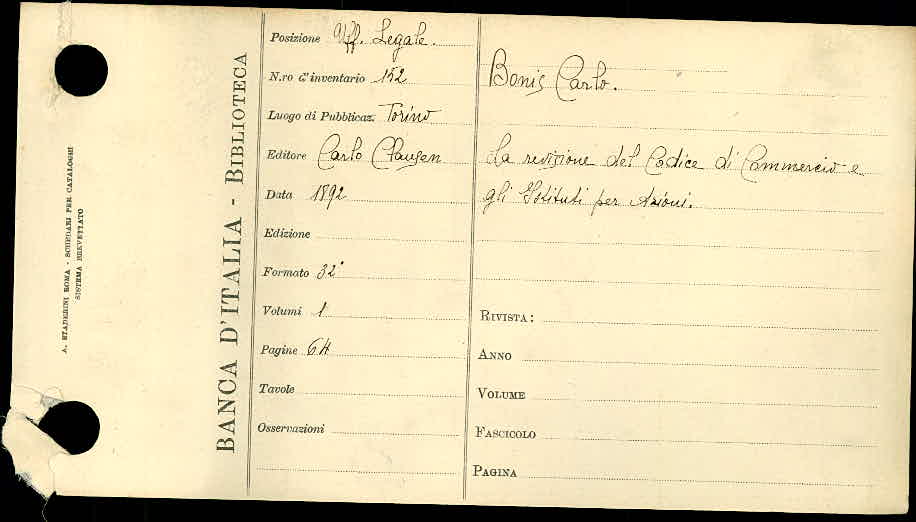 A. STADERINI ROMA - SCHEDARI PER CATALOGHI
SISTEMA BREVETTATO
BANCA D'ITALIA - BIBLIOTECA
Posizione Uff. Legale.
N.ro d'inventario 152
Luogo di Pubblicaz. Torino
Editore Carlo Clausen
Data 1892
Edizione
Formato 32°
Volumi 1
Pagine 64
Tavole
Osservazioni
Bonis Carlo.
La revisione del Codice di Commercio e
gli Istituti per Azioni.
RIVISTA:
ANNO
VOLUME
FASCICOLO
PAGINA